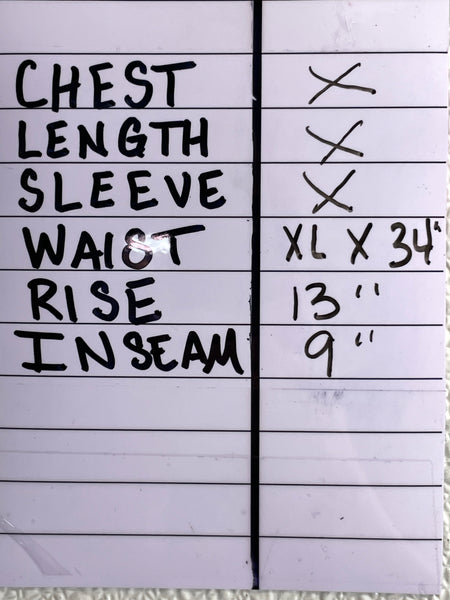 CHEST X
LENGTH X
SLEEVE X
WAIST XL X 34"
RISE 13"
INSEAM 9"